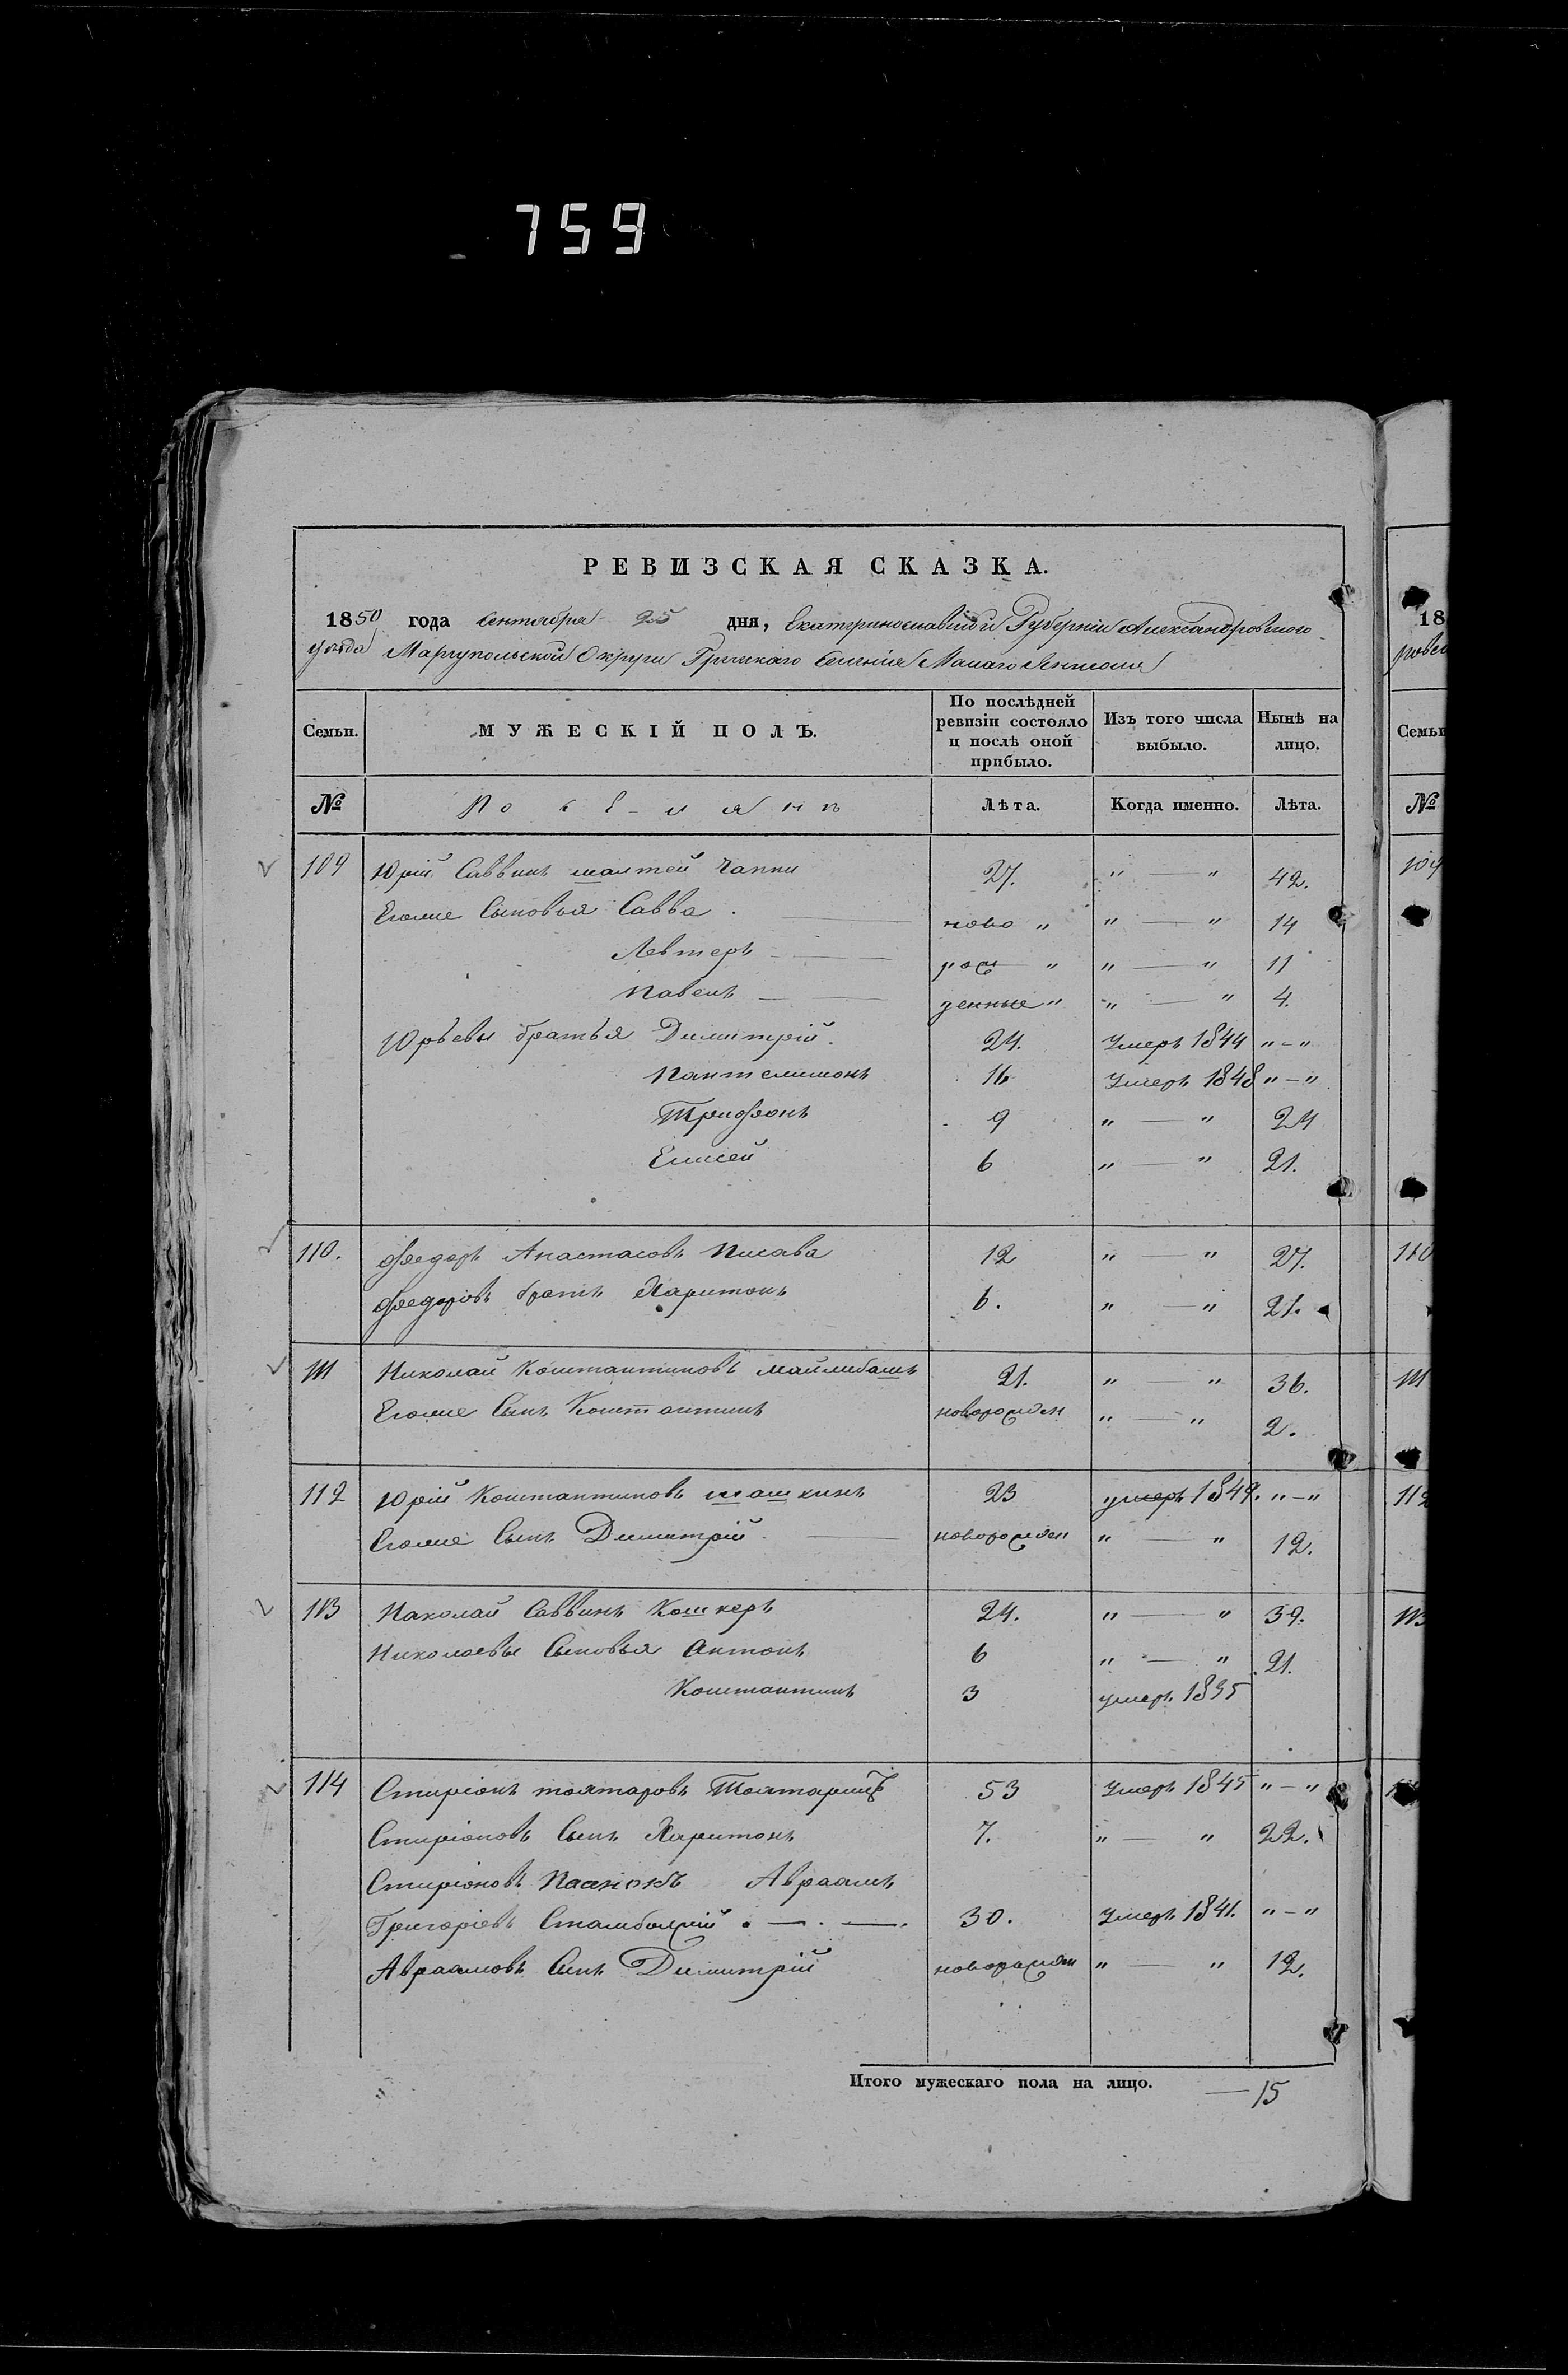 759
РЕВИЗСКАЯ СКАЗКА.
1850 года Сентября 25 дня, Екатеринославской Губерніи Александровского
уѣзда Мариупольской Округи Греческаго Селенія Малаго Янисоля
Семьи. МУЖЕСКІЙ ПОЛЪ. По послѣдней ревизіи состояло и послѣ оной прибыло. Изъ того числа выбыло. Нынѣ на лицо.
№ Поселянъ Лѣта. Когда именно. Лѣта.
109 Юрій Саввинъ Чапни 27. " — " 42.
Егоже Сыновья Савва. ново " " — " 14
Левтеръ рож " " — " 11
Павелъ денные " " — " 4.
Юрьевы братья Димитрій. 24. Умеръ 1844 " - "
Пантелимонъ 16 Умеръ 1848 " - "
Трифонъ 9 " — " 24
Елисей 6 " — " 21.
110. Федоръ Анастасовъ Писава 12 " — " 27.
Федоровъ братъ Харитонъ 6. " — " 21.
111 Николай Константиновъ Майлибашъ 21. " — " 36.
Егоже Сынъ Константинъ новорожден " — " 2.
112 Юрій Константиновъ 23 умеръ 1849. " - "
Егоже Сынъ Димитрій новорожден " — " 12.
113 Николай Саввинъ Кошкеръ 24. " — " 39.
Николаевы Сыновья Антонъ 6 " — " 21.
Константинъ 3 умеръ 1835
114 Спиріонъ 53 Умеръ 1845 " - "
Спиріоновъ Сынъ Харитонъ 7. " — " 22.
Спиріоновъ Авраамъ
Григоріевъ 30. Умеръ 1841. " - "
Авраамовъ Сынъ Димитрій новорожден " — " 12.
Итого мужескаго пола на лицо. — 15
18
Семьи
№
109
110
111
112
113